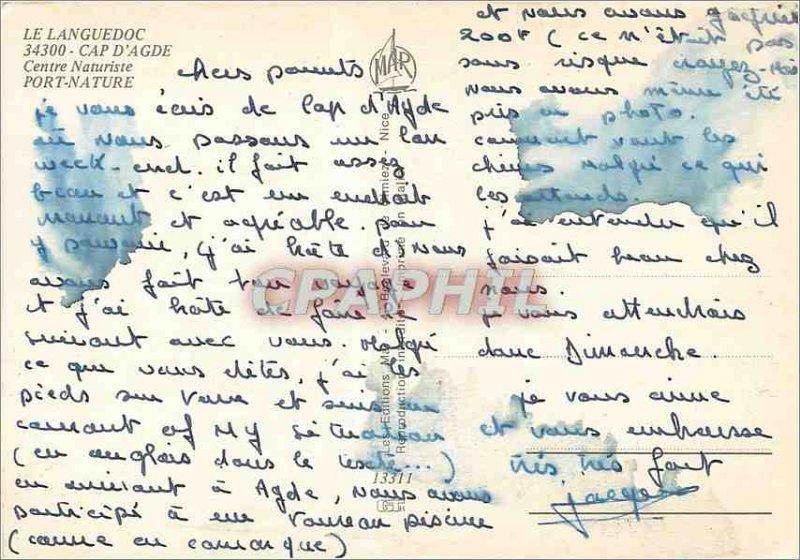 LE LANGUEDOC
34300 - CAP D'AGDE
Centre Naturiste
PORT-NATURE
MAR
chers parents
je vous écris de Cap d'Agde
où nous passons un bon
week-end. il fait assez
beau et c'est un endroit
marrant et agréable. pour
y parvenir, (j'ai hâte de nous
avons fait bon voyage
et j'ai hâte de faire le
suivant avec vous. Malgré
ce que vous dites, j'ai les
pieds sur terre et suis au
courant of My situation
(en anglais dans le texte...)
en arrivant à Agde, nous avons
participé à une taureau piscine
(comme en camargue)
et nous avons gagné
200F (ce n'était pas
sans risque croyez-moi
nous avons même été
pris en photo.
comment vont les
chiens malgré ce qui
les attends.
j'ai entendu qu'il
faisait beau chez
nous.
je vous attendrais
donc Dimanche.
je vous aime
et vous embrasse
très très fort
Les Editions Mar - Boulevard de Nice
Reproduction interdite - Imprimé en Italie
13311
CPAPHIL